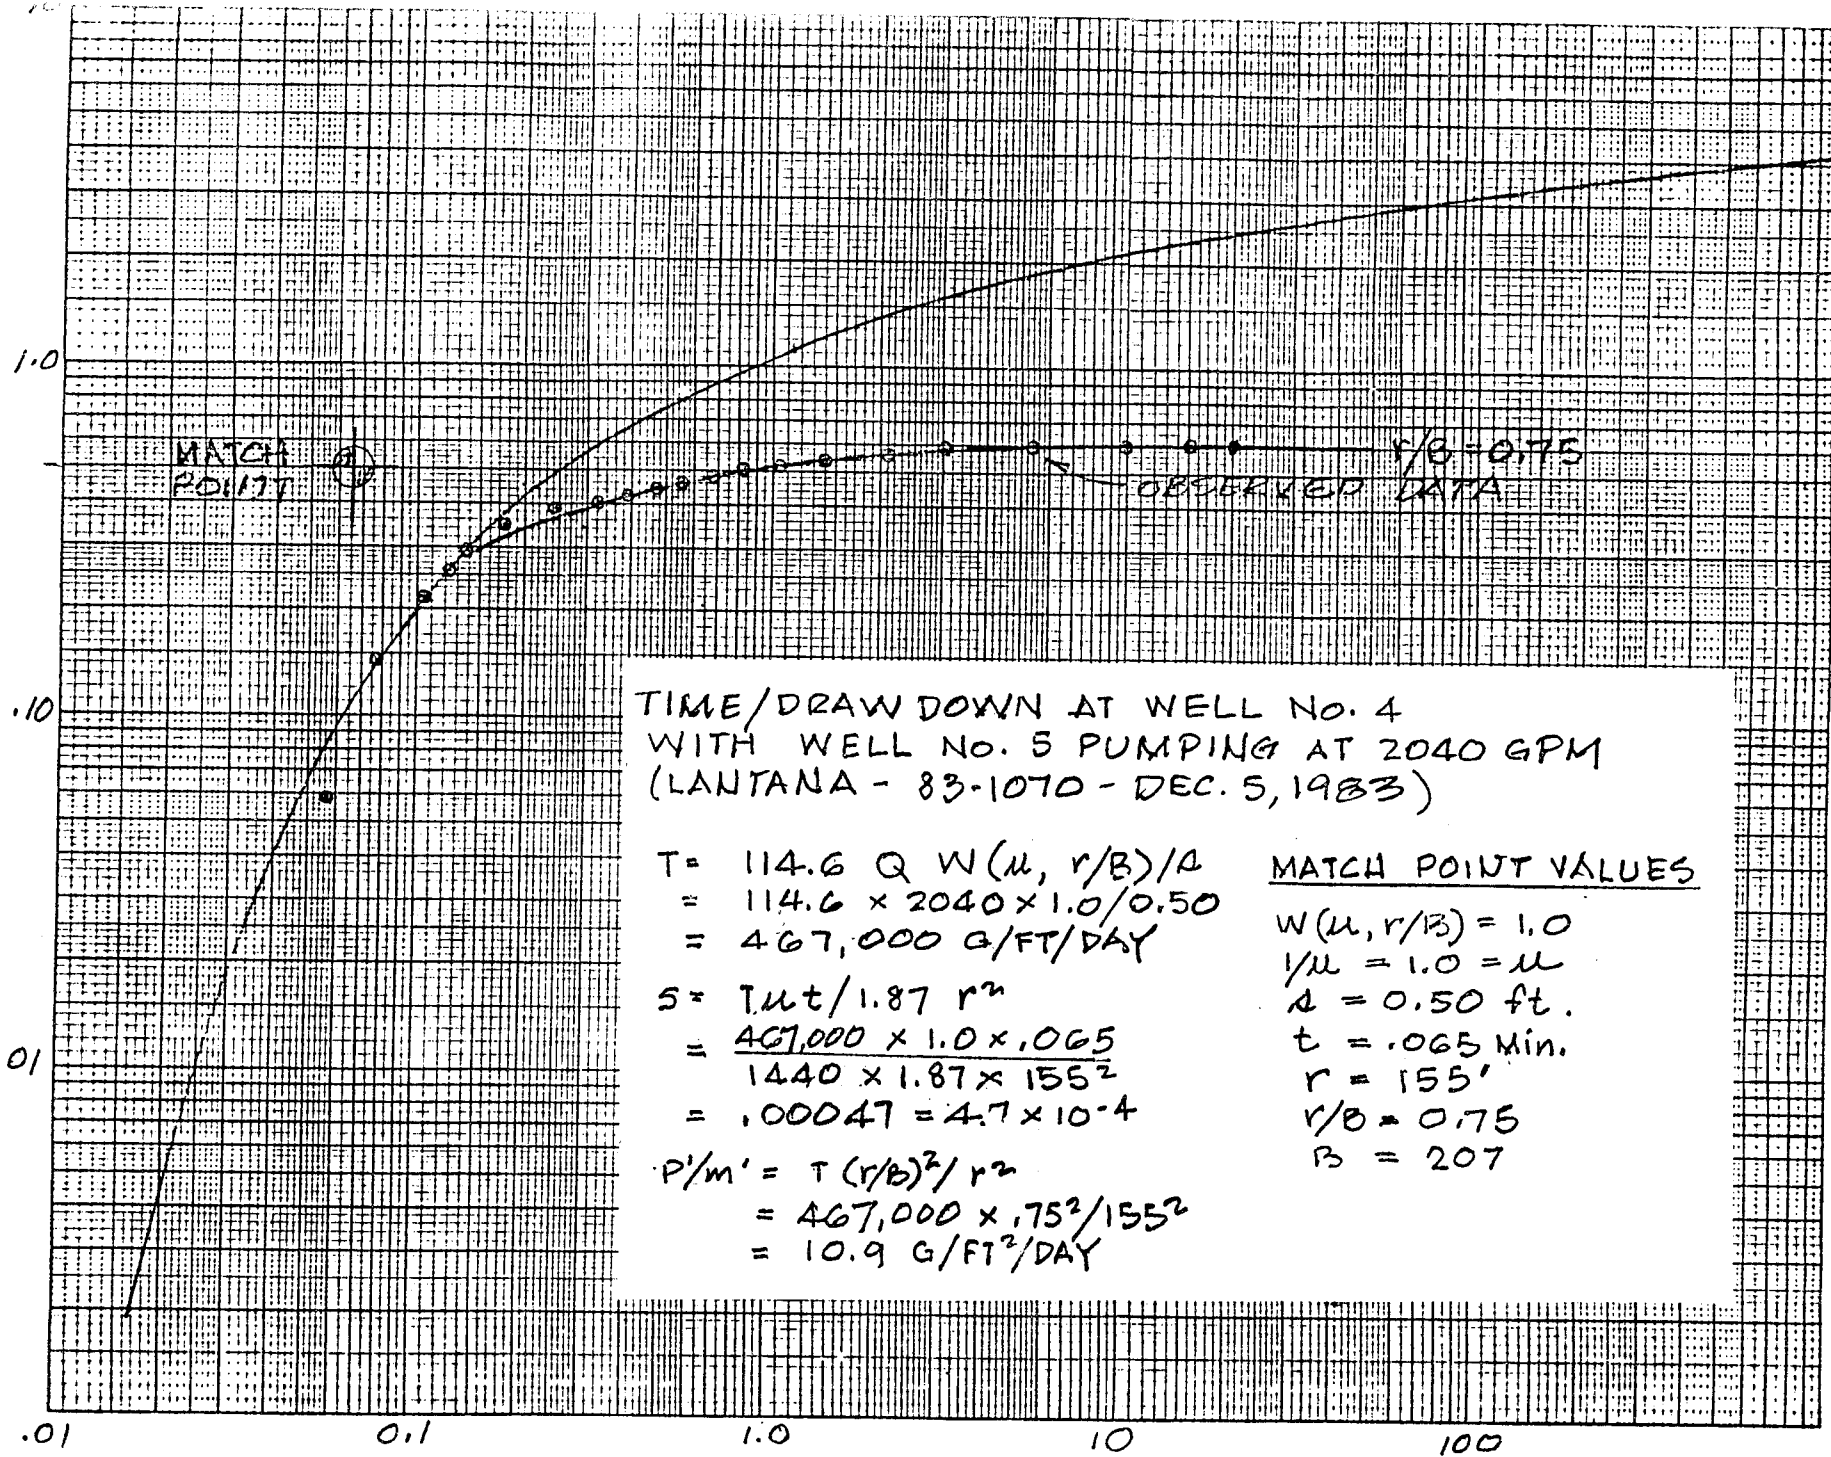 1.0
MATCH
POINT
r/B = 0.75
OBSERVED DATA
.10
01
.01
0.1
1.0
10
100
TIME/DRAWDOWN AT WELL No. 4
WITH WELL No. 5 PUMPING AT 2040 GPM
(LANTANA - 83-1070 - DEC. 5, 1983)
T = 114.6 Q W(u, r/B)/s
= 114.6 x 2040 x 1.0/0.50
= 467,000 G/FT/DAY
S = Tut/1.87 r²
= 467,000 x 1.0 x .065
1440 x 1.87 x 155²
= .00047 = 4.7 x 10-4
P'/m' = T (r/B)²/r²
= 467,000 x .75²/155²
= 10.9 G/FT²/DAY
MATCH POINT VALUES
W(u, r/B) = 1.0
1/u = 1.0 = u
s = 0.50 ft.
t = .065 Min.
r = 155'
r/B = 0.75
B = 207